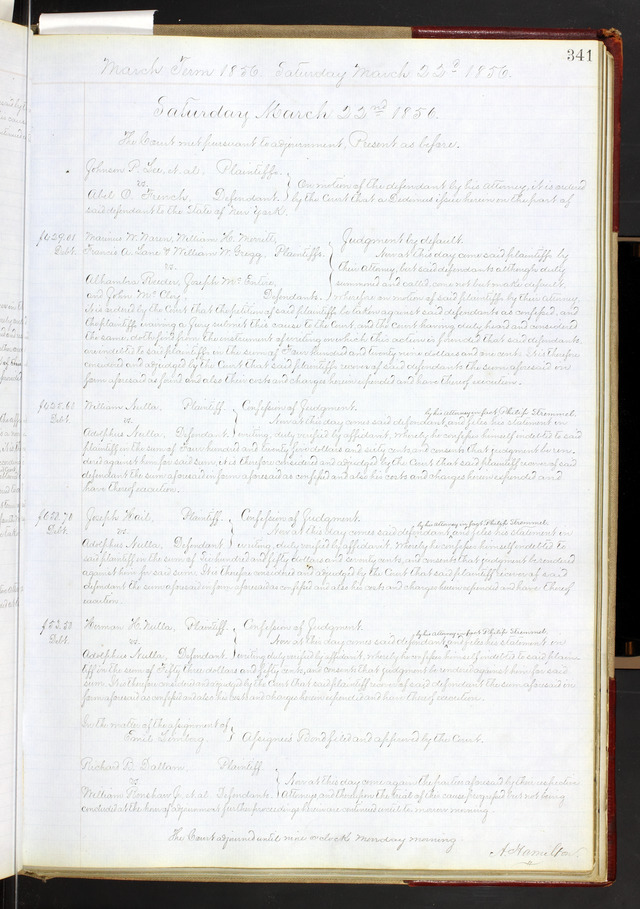 341
March Term 1856. Saturday March 22d 1856.
Saturday March 22nd 1856.
The Court met pursuant to adjournment, Present as before.
Johnson P. Lee, et al. Plaintiffs.
vs.
On motion of the defendant by his attorney, it is ordered
Abel O. French, Defendant.
by the Court that a Dedimus issue herein on the part of
said defendant to the State of New York.
Debt.
William H. Merritt,
Judgment by default.
Francis A. Lane & William W. Gregg. Plaintiffs.
Now at this day come said plaintiffs by
vs.
their attorney, but said defendants although duly
Joseph
summoned and called, come not but make default,
and John Defendants.
wherefore on motion of said plaintiffs by their attorney,
it is ordered by the Court that the petition of said plaintiffs be taken against said defendants as confessed, and
the plaintiffs waiving a Jury submit this cause to the Court, and the Court having duly heard and considered
the same, doth find from the instrument of writing on which this action is founded that said defendants
are indebted to said plaintiffs in the sum of Four hundred and twenty nine dollars and one cents. It is therefore
considered and adjudged by the Court that said plaintiffs recover of said defendants the sum aforesaid in
form aforesaid as found and also their costs and charges herein expended and have thereof execution.
William Nulla, Plaintiff.
Confession of Judgment.
Debt.
vs.
Now at this day comes said defendant, by his attorney in fact Philip Stremmel, and files his statement in
Adolphus Nulla, Defendant.
writing, duly verified by affidavit, whereby he confesses himself indebted to said
plaintiff in the sum of Four hundred and twenty five dollars and sixty cents, and consents that judgment be ren-
dered against him for said sum; it is therefore considered and adjudged by the Court that said plaintiff recover of said
defendant the sum aforesaid in form aforesaid as confessed and also his costs and charges herein expended and
have thereof execution.
Joseph Hail, Plaintiff.
Confession of Judgment.
Debt.
vs.
Now at this day comes said defendant, by his attorney in fact Philip Stremmel, and files his statement in
Adolphus Nulla, Defendant.
writing, duly verified by affidavit, whereby he confesses himself indebted to
said plaintiff in the sum of Six hundred and fifty dollars and seventy cents, and consents that judgment be rendered
against him for said sum. It is therefore considered and adjudged by the Court that said plaintiff recover of said
defendant the sum aforesaid in form aforesaid as confessed and also his costs and charges herein expended and have thereof
execution.
Herman H. Nulla, Plaintiff.
Confession of Judgment.
Debt.
vs.
Now at this day comes said defendant, by his attorney in fact Philip Stremmel, and files his statement in
Adolphus Nulla, Defendant.
writing duly verified by affidavit, whereby he confesses himself indebted to said plain-
tiff in the sum of Fifty three dollars and fifty cents, and consents that judgment be rendered against him for said
sum. It is therefore considered and adjudged by the Court that said plaintiff recover of said defendant the sum aforesaid in
form aforesaid as confessed and also his costs and charges herein expended and have thereof execution.
In the matter of the assignment of
Emil Lindag
Assignees Bond filed and approved by the Court.
Richard B. Dallam, Plaintiff
vs.
Now at this day come again the parties aforesaid by their respective
William Renshaw Jr. et al. Defendants.
Attorneys and thereupon the trial of this cause progressed but not being
concluded at the hour of adjournment further proceedings herein are continued until to-morrow morning.
The Court adjourned until nine o'clock Monday morning
A. Hamilton